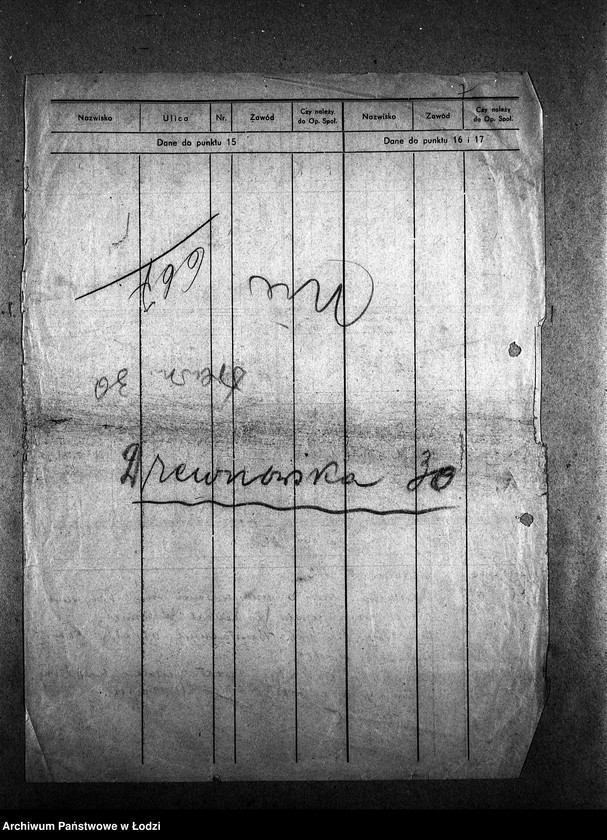 Nazwisko Ulica Nr. Zawód Czy należy do Op. Społ. Nazwisko Zawód Czy należy do Op. Społ.
Dane do punktu 15 Dane do punktu 16 i 17
667
Nie
30
Drewnowska 30
Archiwum Państwowe w Łodzi